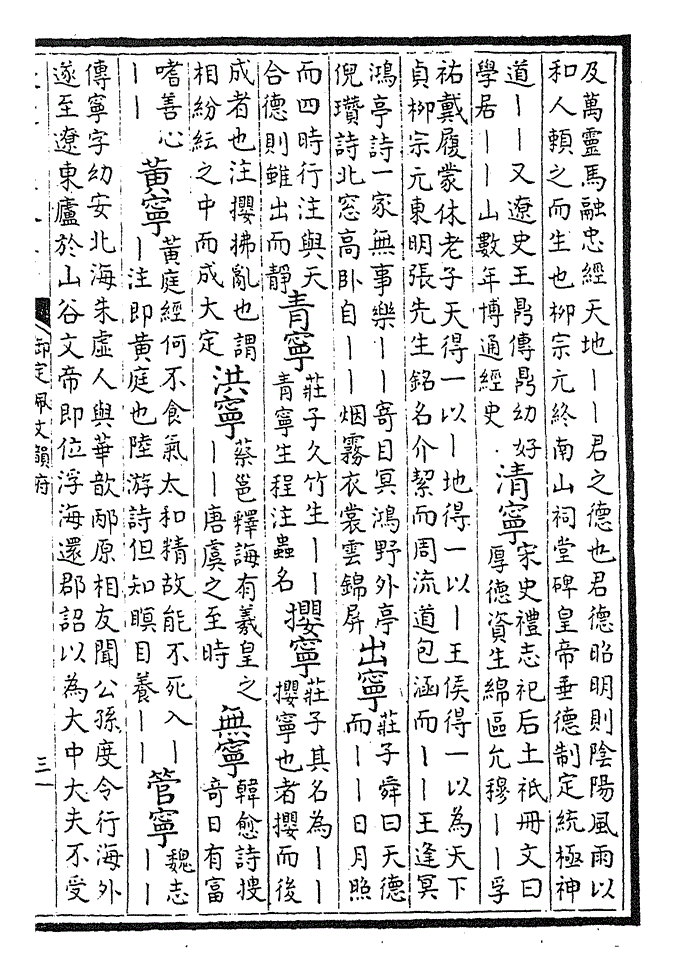 及萬靈馬融忠經天地丨丨君之德也君德昭明則陰陽風雨以
和人賴之而生也柳宗元終南山祠堂碑皇帝垂德制定統極神
道丨丨又遼史王鼎傳鼎幼好
學居丨丨山數年博通經史
清寧
宋史禮志祀后土祇冊文曰
厚德資生綿區允穆丨丨孚
祐戴履蒙休老子天得一以丨地得一以丨王侯得一以為天下
貞柳宗元東明張先生銘名介絜而周流道包涵而丨丨王逢冥
鴻亭詩一家無事樂丨丨寄目冥鴻野外亭
倪瓚詩北窓高卧自丨丨烟霧衣裳雲錦屏
出寧
莊子舜曰天德
而丨丨日月照
而四時行注與天
合德則雖出而靜
青寧
莊子久竹生丨丨
青寧生程注蟲名
攖寧
莊子其名為丨丨
攖寧也者攖而後
成者也注攖拂亂也謂
相紛紜之中而成大定
洪寧
蔡邕釋誨有羲皇之
丨丨唐虞之至時
無寧
韓愈詩搜
奇日有富
嗜善心
丨丨
黃寧
黃庭經何不食氣太和精故能不死入丨
丨注即黃庭也陸游詩但知瞑目養丨丨
管寧
魏志
丨丨
傳寧字幼安北海朱虛人與華歆邴原相友聞公孫度令行海外
遂至遼東廬於山谷文帝即位浮海還郡詔以為大中大夫不受
御定佩文韻府
三